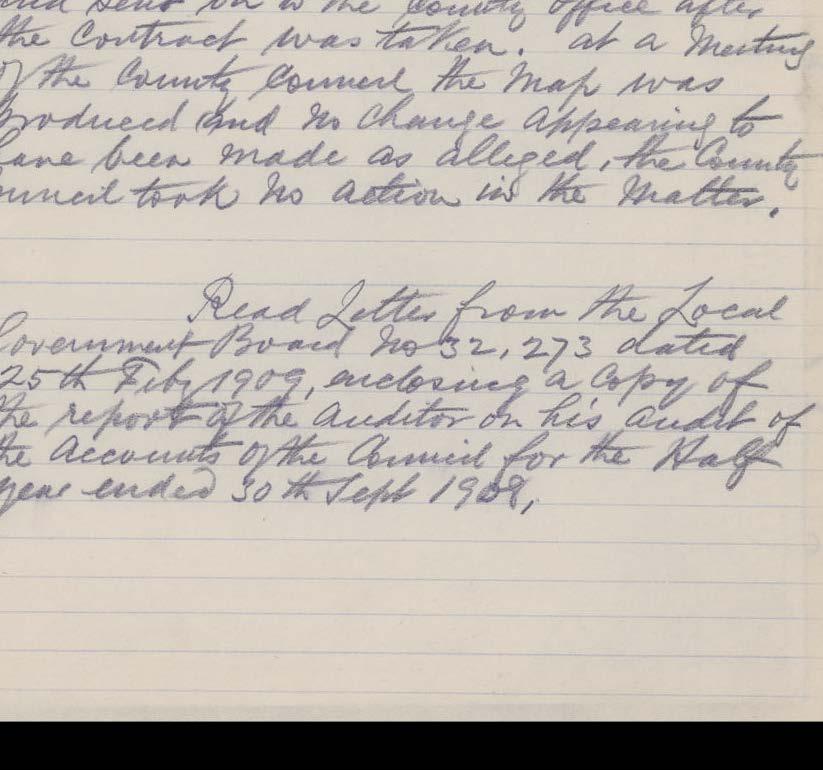 and sent on to the County office after
the Contract was taken. at a Meeting
of the County Council the Map was
produced and no change appearing to
have been made as alleged, the County
uncil took no action in the Matter.
Read Letter from the Local
Government Board No 32,273 dated
25th Feby 1909, enclosing a Copy of
the report of the Auditor on his audit of
the Accounts of the Council for the Half
year ended 30th Sept 1908,